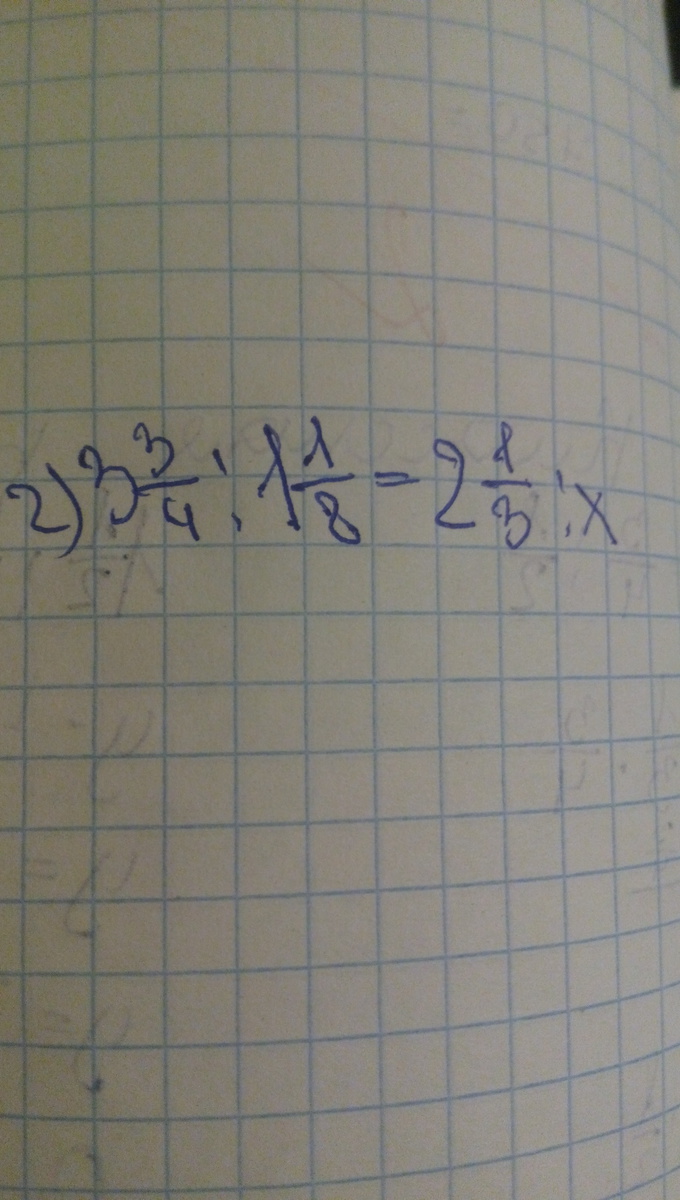 2) 3 3/4 : 1 1/8 = 2 1/3 : x